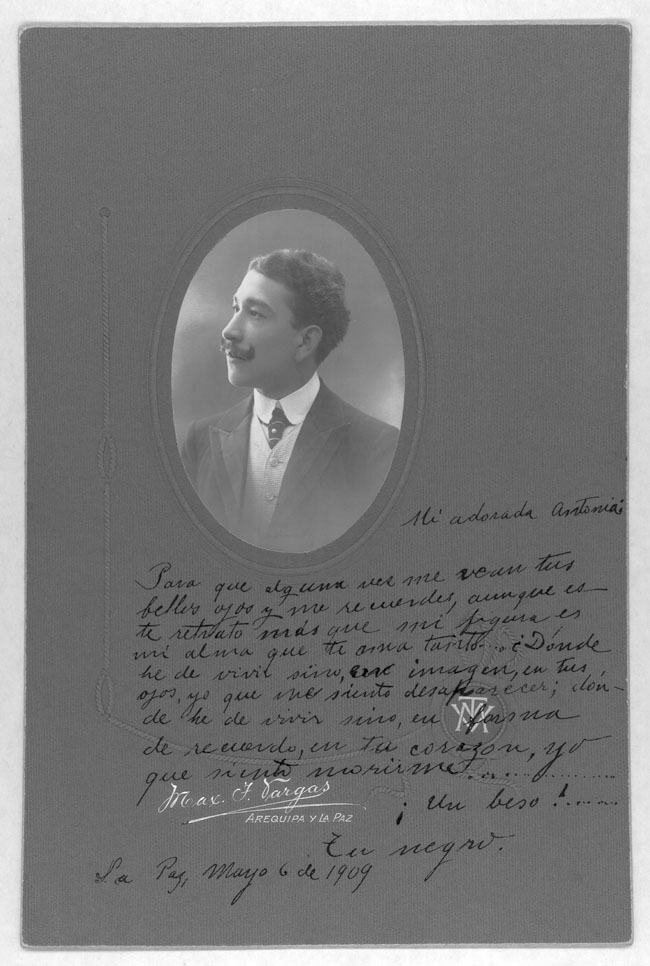 Mi adorada Antonia:
Para que alguna vez me vean tus
bellos ojos y me recuerdes, aunque es-
te retrato más que mi figura es
mi alma que te ama tanto.... ¿Dónde
he de vivir sino, en imagen, en tus
ojos, yo que me siento desaparecer; dón-
de he de vivir sino, en forma
de recuerdo, en tu corazon, yo
que siento morirme..................
Max. T. Vargas
AREQUIPA Y LA PAZ
¡Un beso!......
Tu negro.
La Paz, Mayo 6 de 1909